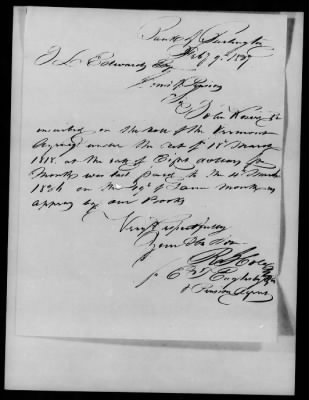 Bank of Burlington
Feby 9th 1837
J. L. Edwards Esq
Com of Pensions
Sir
John
inscribed on the Roll of the Vermont
Agency under the act of 18th March
1818. at the rate of Eight dollars per
month was last paid to the 4th March
1826 on the of same month as
appears by our Books
Very respectfully
Your Ob
Pension Agent